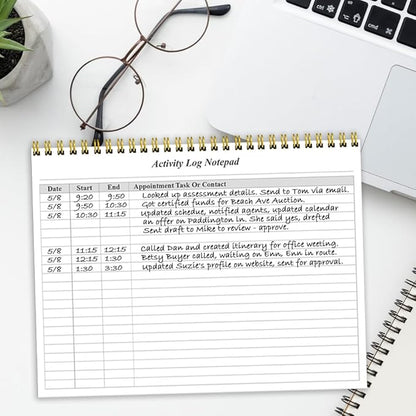 Activity Log Notepad
Date Start End Appointment Task Or Contact
5/8 9:20 9:50 Looked up assessment details. Send to Tom via email.
5/8 9:50 10:30 Got certified funds for Beach Ave Auction.
5/8 10:30 11:15 updated schedue, notified agents, updated calendar
an offer on Paddington ln. She said yes, drefted
Sent draft to Mike to review - approve.
5/8 11:15 12:15 Called Dan and created itinerary for office weeting.
5/8 12:15 1:30 Betsy Buyer called, waiting on Enn, Enn in route.
5/8 1:30 3:30 updated Suzie's profile on website, sent for approval.